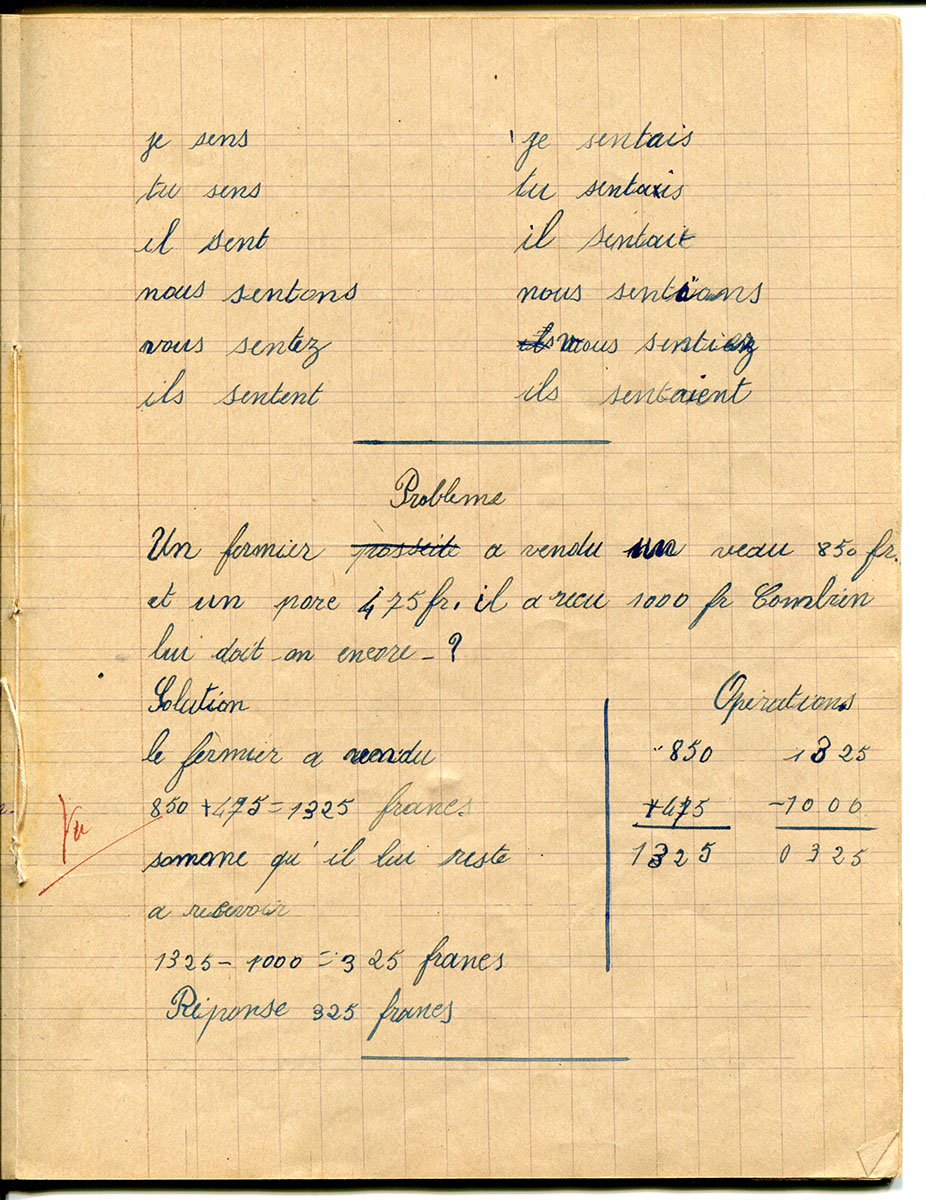 je sens
tu sens
il sent
nous sentons
vous sentez
ils sentent
je sentais
tu sentais
il sentait
nous sentions
ils vous sentiez
ils sentaient
Probleme
Un fermier possède a vendu un veau 850 fr.
et un porc 475 fr. il a recu 1000 fr Combien
lui doit-on encore - ?
Solution
le fermier a vendu
850 + 475 = 1325 francs
somme qu'il lui reste
a recevoir
1325 - 1000 = 325 francs
Réponse 325 francs
Opérations
850
+475
1325
1325
-1000
0325
Vu